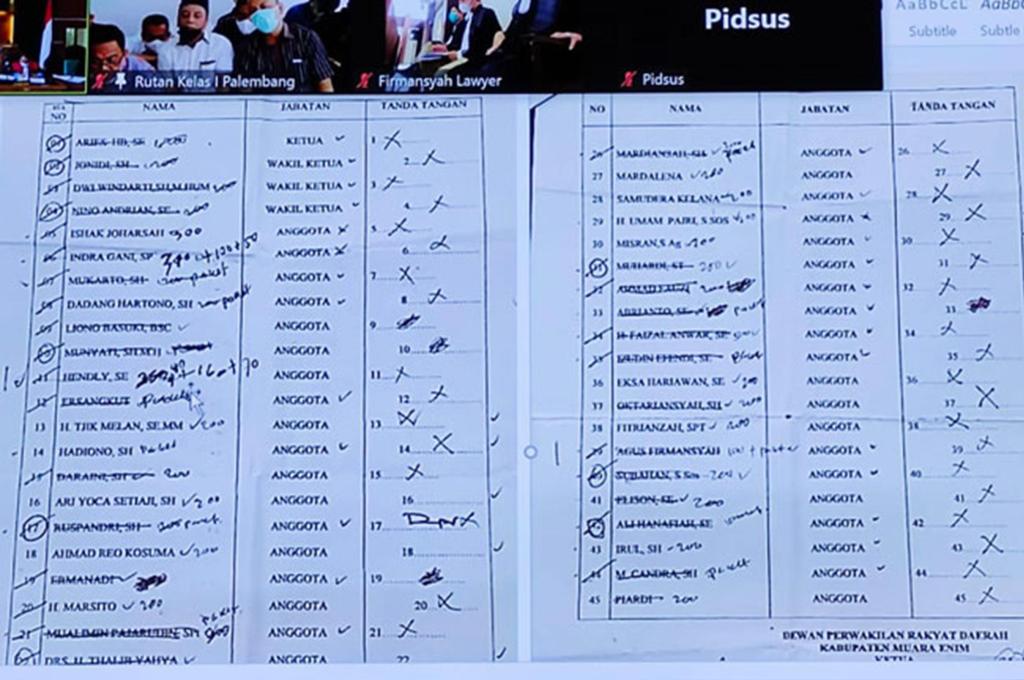 Pidsus
AaBbCcL
Subtitle
Subtle
Rutan Kelas I Palembang
Firmansyah Lawyer
Pidsus
NO NAMA JABATAN TANDA TANGAN
ARIES HB, SE KETUA 1
JONIDI, SH WAKIL KETUA 2
DWI WINDARTI, SH, M.HUM WAKIL KETUA 3
NINO ANDRIAN, SE WAKIL KETUA 4
05 ISHAK JOHARSAH ANGGOTA 5
06 INDRA GANI, SP ANGGOTA 6
07 MUKARTO, SH ANGGOTA 7
DADANG HARTONO, SH ANGGOTA 8
LIONO BASUKI, BSC ANGGOTA 9
MUNYATI, SH.MH ANGGOTA 10
11 HENDLY, SE ANGGOTA 11
12 ERSANGKUT ANGGOTA 12
13 H. TJIK MELAN, SE.MM 200 ANGGOTA 13
14 HADIONO, SH paket ANGGOTA 14
15 DARAINI, SH 200 ANGGOTA 15
16 ARI YOCA SETIAJI, SH 200 ANGGOTA 16
17 RUSPANDRI, SH ANGGOTA 17
18 AHMAD REO KOSUMA 200 ANGGOTA 18
19 ERMANADI ANGGOTA 19
20 H. MARSITO 200 ANGGOTA 20
21 MUALIMIN PAJARUDIN, SPI ANGGOTA 21
DRS. H. THALIB YAHYA ANGGOTA 22
NO NAMA JABATAN TANDA TANGAN
26 MARDIANSAH, SH paket ANGGOTA 26
27 MARDALENA ANGGOTA 27
28 SAMUDERA KELANA ANGGOTA 28
29 H. UMAM PAJRI, S.SOS ANGGOTA 29
30 MISRAN, S.Ag ANGGOTA 30
31 MUHARDI, ST 200 ANGGOTA 31
32 ANGGOTA 32
33 ADRIANTO, SE paket ANGGOTA 33
34 H. FAIZAL ANWAR, SE ANGGOTA 34
35 IZUDIN EFENDI, SE ANGGOTA 35
36 EKSA HARIAWAN, SE ANGGOTA 36
37 OKTARIANSYAH, SH 200 ANGGOTA 37
38 FITRIANZAH, SPT 200 ANGGOTA 38
39 AGUS FIRMANSYAH ANGGOTA 39
SUBAHAN, S.Sos 200 ANGGOTA 40
41 ELISON, SE 200 ANGGOTA 41
ALI HANAFIAH, SE ANGGOTA 42
43 IRUL, SH 200 ANGGOTA 43
44 M. CANDRA, SH paket ANGGOTA 44
45 PIARDI 200 ANGGOTA 45
DEWAN PERWAKILAN RAKYAT DAERAH
KABUPATEN MUARA ENIM
KETUA